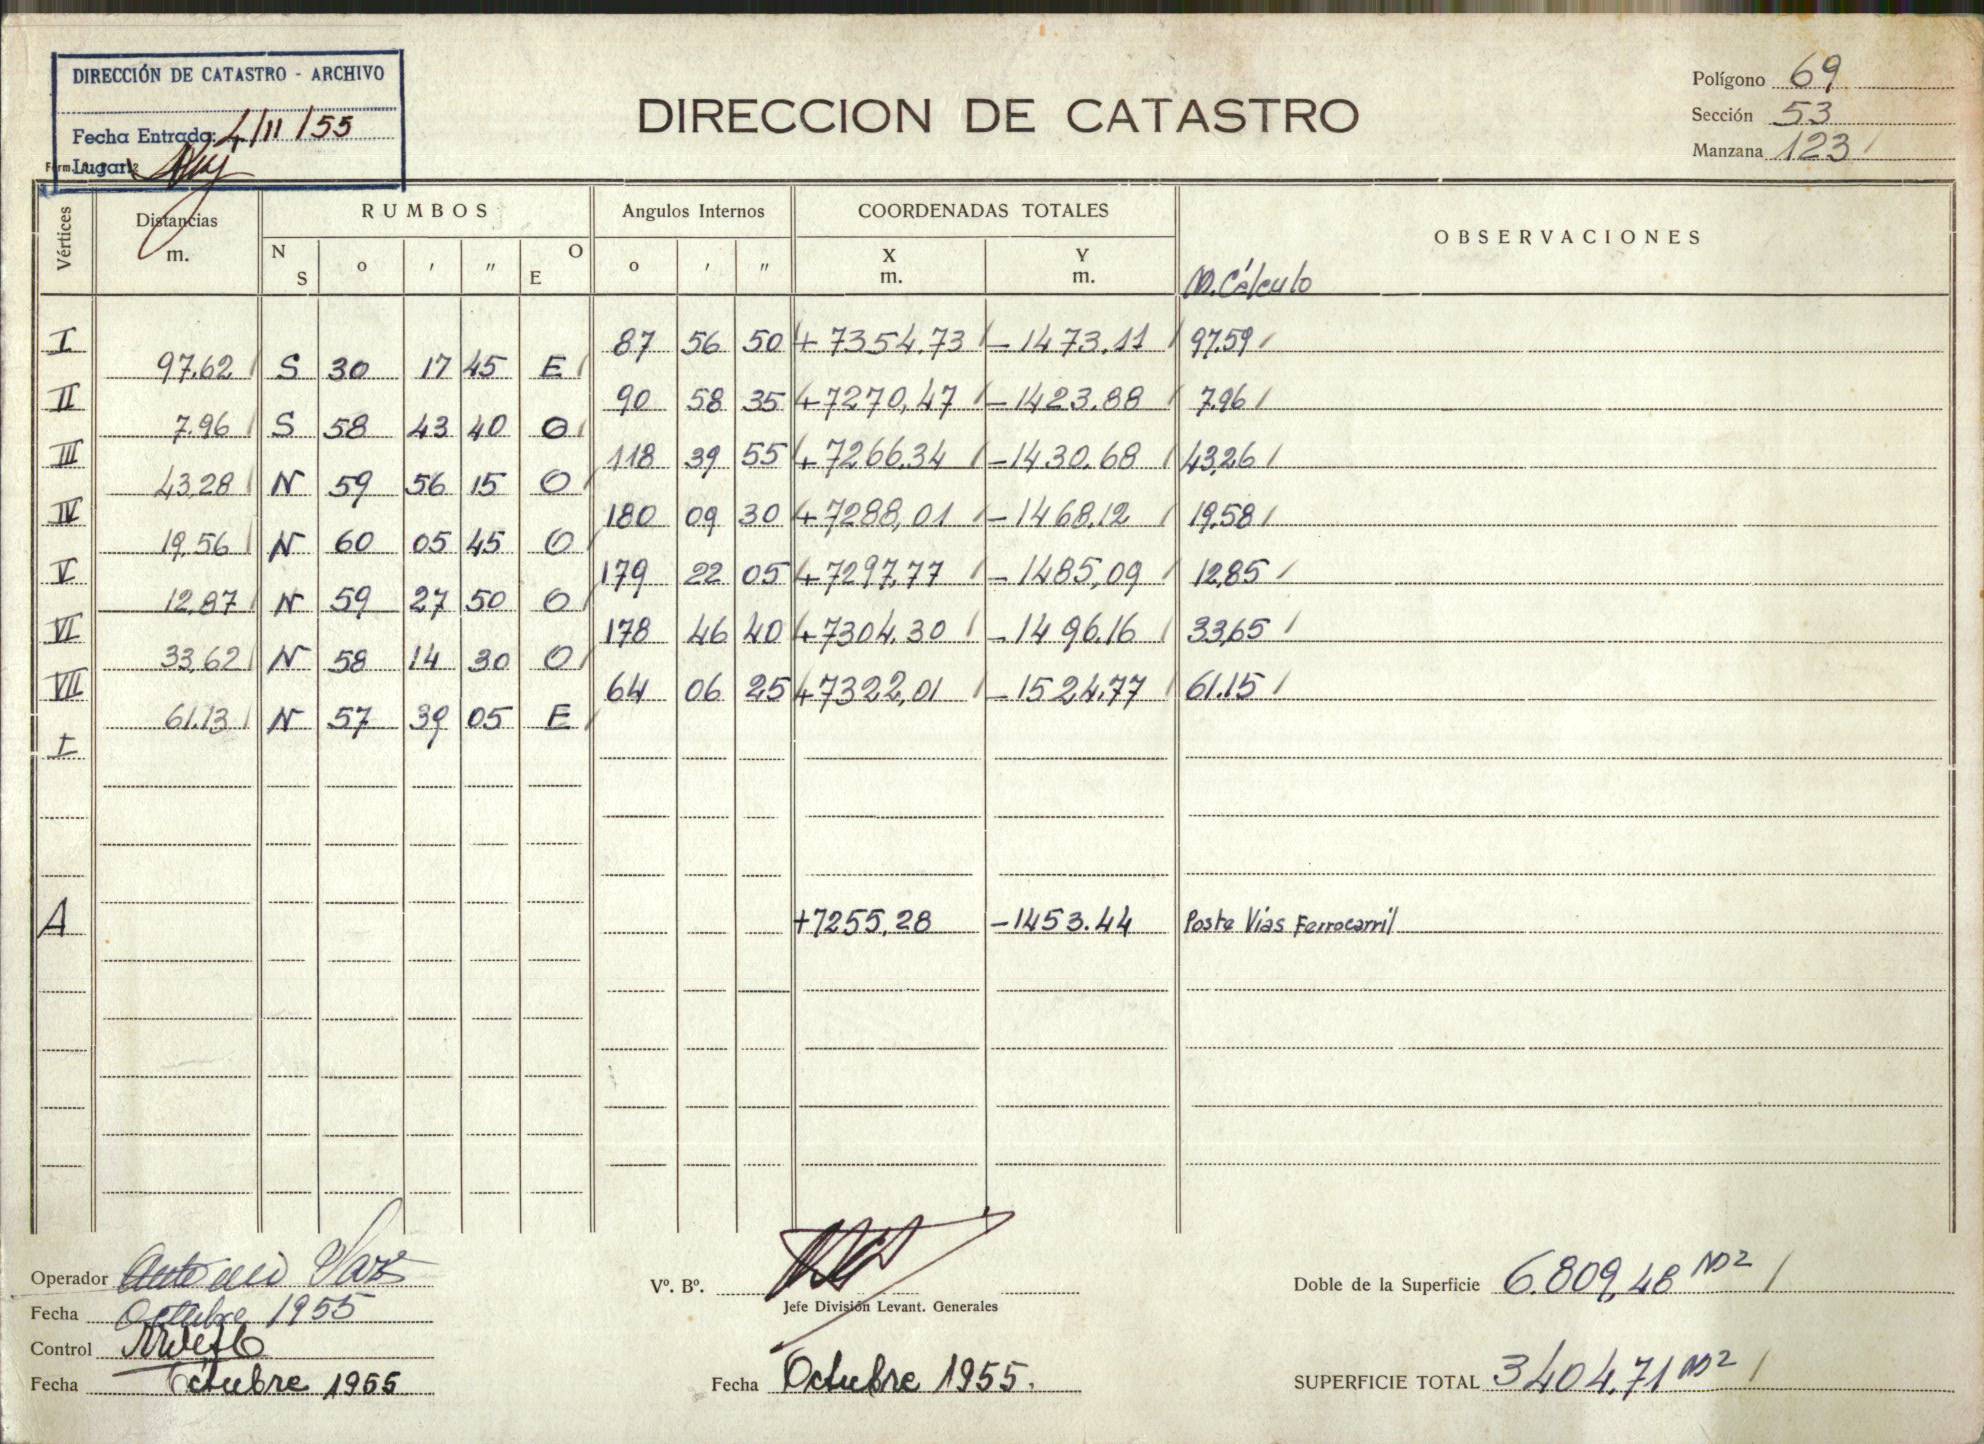 DIRECCIÓN DE CATASTRO - ARCHIVO
Fecha Entrada: 4/11/55
Lugar:
DIRECCION DE CATASTRO
Polígono 69
Sección 53
Manzana 123
Vértices Distancias m. RUMBOS Angulos Internos COORDENADAS TOTALES OBSERVACIONES
N S ° ' " O E ° ' " X m. Y m. M. Cálculo
I 87 56 50 +7354.73 -1473.11 97.59
97.62 S 30 17 45 E
II 90 58 35 +7270,47 -1423.88 7.96
7.96 S 58 43 40 O
III 118 39 55 +7266.34 -1430.68 43,26
43.28 N 59 56 15 O
IV 180 09 30 +7288,01 -1468.12 19,58
19,56 N 60 05 45 O
V 179 22 05 +7297,77 -1485,09 12,85
12,87 N 59 27 50 O
VI 178 46 40 +7304.30 -1496.16 33,65
33,62 N 58 14 30 O
VII 64 06 25 +7322,01 -1524.77 61.15
61.13 N 57 39 05 E
I
A +7255,28 -1453.44 Poste Vías Ferrocarril
Operador Antonio
Fecha Octubre 1955
Control
Fecha Octubre 1955
Vº. Bº.
Jefe División Levant. Generales
Fecha Octubre 1955.
Doble de la Superficie 6.809,48 m2
SUPERFICIE TOTAL 3404.71 m2